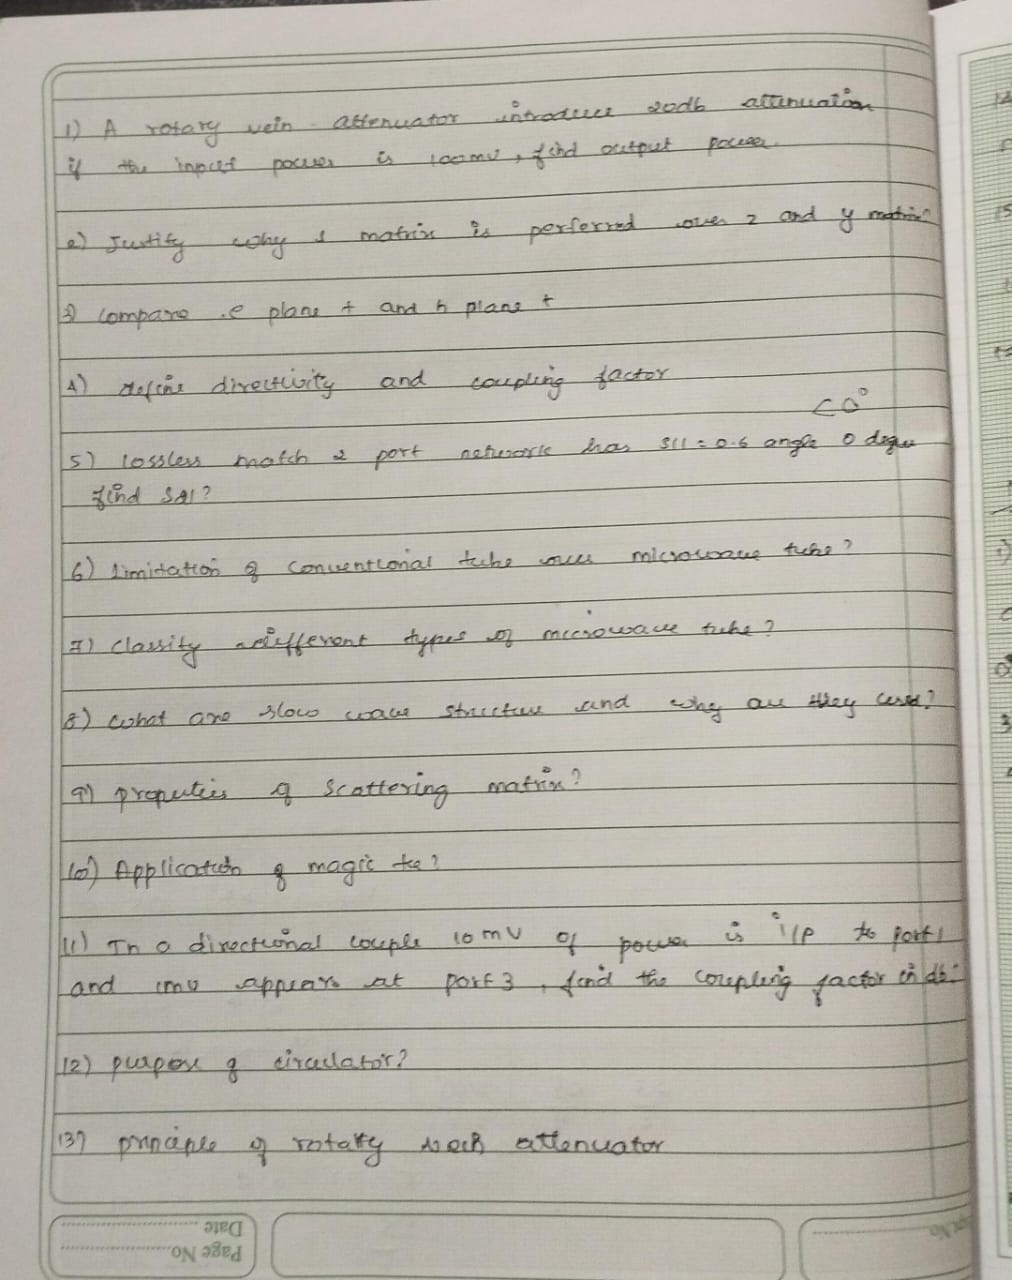 1) A rotary vein attenuator introduce 20db attenuation
if the input power is 100mv, find output power.
2) Justify why s matrix is perferred over z and y matrix
3) compare e plane t and h plane t
4) define directivity and coupling factor
<0°
5) lossless match 2 port network has S11 = 0.6 angle 0 degree
find S21?
6) limitation of conventional tube over microwave tube?
7) classify different types of microwave tube?
8) what are slow wave structure and why are they used?
9) properties of scattering matrix?
10) Application of magic tee?
11) In a directional couple 10mv of power is i/p to port1
and 1mv appears at port3, find the coupling factor in db.
12) purpose of circulator?
13) principle of rotary attenuator
Page No.
Date